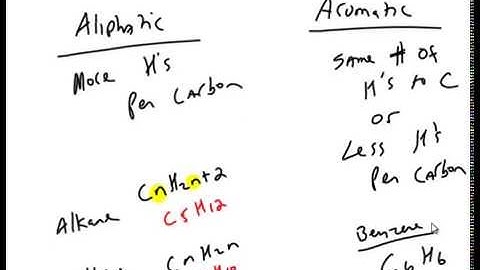 Aliphatic
More H's
Per Carbon
CnH2n+2
Alkane
C5H12
CnH2n
Aromatic
Same # of
H's to C
or
Less H's
Per Carbon
Benzene
C6H6